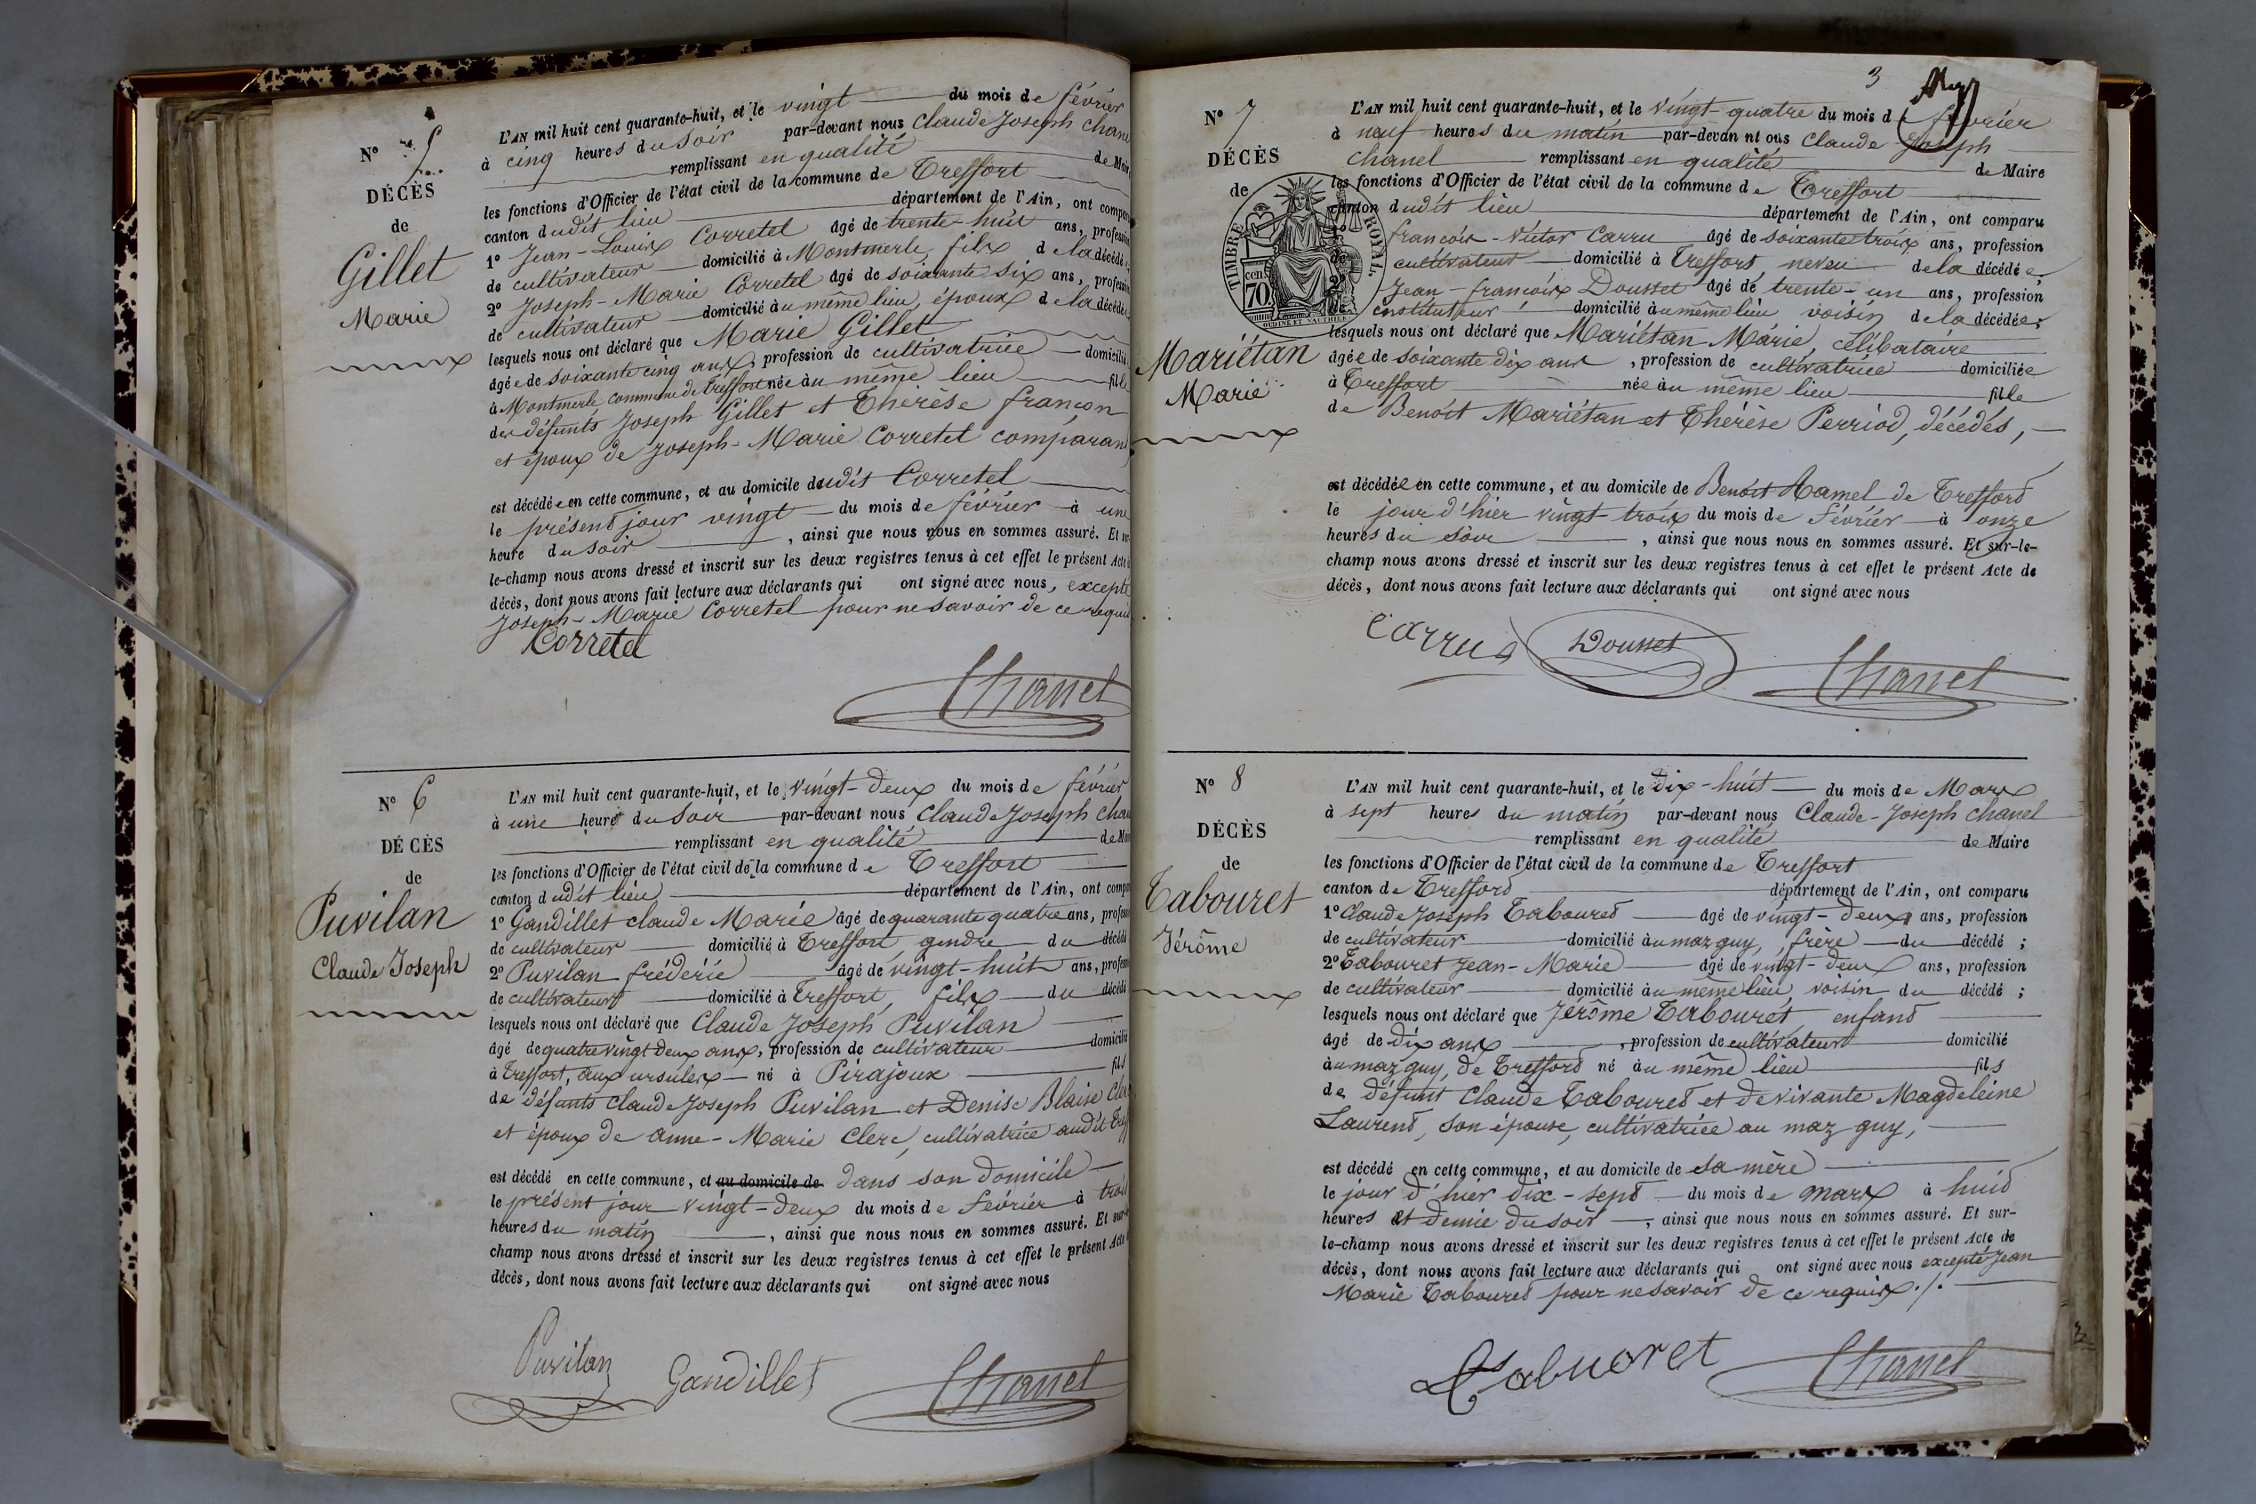 N° 5
DÉCÈS
de
Gillet
Marie
L'AN mil huit cent quarante-huit, et le vingt du mois de février
à cinq heures du soir par-devant nous Claude Joseph Chanel
remplissant en qualité de Maire
les fonctions d'Officier de l'état civil de la commune de Treffort
canton dudit lieu département de l'Ain, ont comparu
1° Jean-Louis Corretel âgé de trente-huit ans, profession
de cultivateur domicilié à Montmerle, fils de la décédée
2° Joseph-Marie Corretel âgé de soixante six ans, profession
de cultivateur domicilié au même lieu, époux de la décédée
lesquels nous ont déclaré que Marie Gillet
âgée de soixante cinq ans, profession de cultivatrice domicilié
à Montmerle commune de Treffort née au même lieu fille
des défunts Joseph Gillet et Thérèse françon
et époux de Joseph-Marie Corretel comparant
est décédée en cette commune, et au domicile dudit Corretel
le présent jour vingt du mois de février à une
heure du soir, ainsi que nous nous en sommes assuré. Et sur-
le-champ nous avons dressé et inscrit sur les deux registres tenus à cet effet le présent Acte de
décès, dont nous avons fait lecture aux déclarants qui ont signé avec nous, excepté
Joseph-Marie Corretel pour ne savoir de ce requis
Corretel
Chanel
N° 6
DÉCÈS
de
Puvilan
Claude Joseph
L'AN mil huit cent quarante-huit, et le vingt-deux du mois de février
à une heure du soir par-devant nous Claude Joseph Chanel
remplissant en qualité de Maire
les fonctions d'Officier de l'état civil de la commune de Treffort
canton dudit lieu département de l'Ain, ont comparu
1° Gandillet claude Marie âgé de quarante quatre ans, profession
de cultivateur domicilié à Treffort, gendre du décédé
2° Puvilan fréderic âgé de vingt-huit ans, profession
de cultivateur domicilié à Treffort, fils du décédé
lesquels nous ont déclaré que Claude Joseph Puvilan
âgé de quatre vingt deux ans, profession de cultivateur domicilié
à Treffort, aux ursules né à Pirajoux fils
de défunts Claude Joseph Puvilan et Denise Blaise Clerc
et époux de Anne-Marie Clerc, cultivatrice audit Treff
est décédé en cette commune, et au domicile de dans son domicile
le présent jour vingt-deux du mois de février à trois
heures du matin, ainsi que nous nous en sommes assuré. Et sur-le-
champ nous avons dressé et inscrit sur les deux registres tenus à cet effet le présent Acte de
décès, dont nous avons fait lecture aux déclarants qui ont signé avec nous
Puvilan
Gandillet
Chanel
3
N° 7
DÉCÈS
de
TIMBRE ROYAL
cen 70
OUDINÉ ET VAUTHIER
Mariétan
Marie
L'AN mil huit cent quarante-huit, et le vingt-quatre du mois de février
à neuf heures du matin par-devant nous Claude Joseph
Chanel remplissant en qualité de Maire
les fonctions d'Officier de l'état civil de la commune de Treffort
canton dudit lieu département de l'Ain, ont comparu
1° françois-Victor Carru âgé de soixante trois ans, profession
de cultivateur domicilié à Treffort, neveu de la décédée
2° Jean-françois Dousset âgé de trente-un ans, profession
de instituteur domicilié au même lieu voisin de la décédée;
lesquels nous ont déclaré que Mariétan Marie, célibataire
âgée de soixante dix ans, profession de cultivatrice domiciliée
à Treffort née au même lieu fille
de Benoit Mariétan et Thérèse Perriod, décédés,
est décédée en cette commune, et au domicile de Benoit Hamel de Treffort
le jour d'hier vingt-trois du mois de février à onze
heures du soir, ainsi que nous nous en sommes assuré. Et sur-le-
champ nous avons dressé et inscrit sur les deux registres tenus à cet effet le présent Acte de
décès, dont nous avons fait lecture aux déclarants qui ont signé avec nous
Carru
Dousset
Chanel
N° 8
DÉCÈS
de
Tabouret
Jérôme
L'AN mil huit cent quarante-huit, et le dix-huit du mois de Mars
à sept heures du matin par-devant nous Claude-Joseph Chanel
remplissant en qualité de Maire
les fonctions d'Officier de l'état civil de la commune de Treffort
canton de Treffort département de l'Ain, ont comparu
1° Claude Joseph Tabouret âgé de vingt-deux ans, profession
de cultivateur domicilié au maz guy, frère du décédé;
2° Tabouret Jean-Marie âgé de vingt-deux ans, profession
de cultivateur domicilié au même lieu voisin du décédé;
lesquels nous ont déclaré que Jérôme Tabouret enfant
âgé de dix ans, profession de cultivateur domicilié
au maz guy, de Treffort né au même lieu fils
de défunt Claude Tabouret et de vivante Magdeleine
Laurent, son épouse, cultivatrice au maz guy,
est décédé en cette commune, et au domicile de sa mère
le jour d'hier dix-sept du mois de mars à huit
heures et demie du soir, ainsi que nous nous en sommes assuré. Et sur-
le-champ nous avons dressé et inscrit sur les deux registres tenus à cet effet le présent Acte de
décès, dont nous avons fait lecture aux déclarants qui ont signé avec nous excepté Jean
Marie Tabouret pour ne savoir de ce requis./.
Tabuoret
Chanel